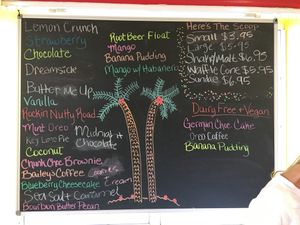 Lemon Crunch
Strawberry
Chocolate
Dreamside
Butter Me Up
Vanilla
Rockin Nutty Road
Mint Oreo
Key Lime Pie
Midnight
Chocolate
Coconut
Chunk Choc Brownie
Bailey's Coffee
Cookies +
Cream
Blueberry Cheesecake
Sea Salt + Caramel
Bourbon Butter Pecan
Root Beer Float
Mango
Banana Pudding
Mango w/ Habanero
Here's The Scoop
Small $3.95
Large $5.95
Shake/Malt $6.95
Waffle Cone $6.95
Sundae $6.95
Dairy Free + Vegan
German Choc Cake
Oreo Coffee
Banana Pudding